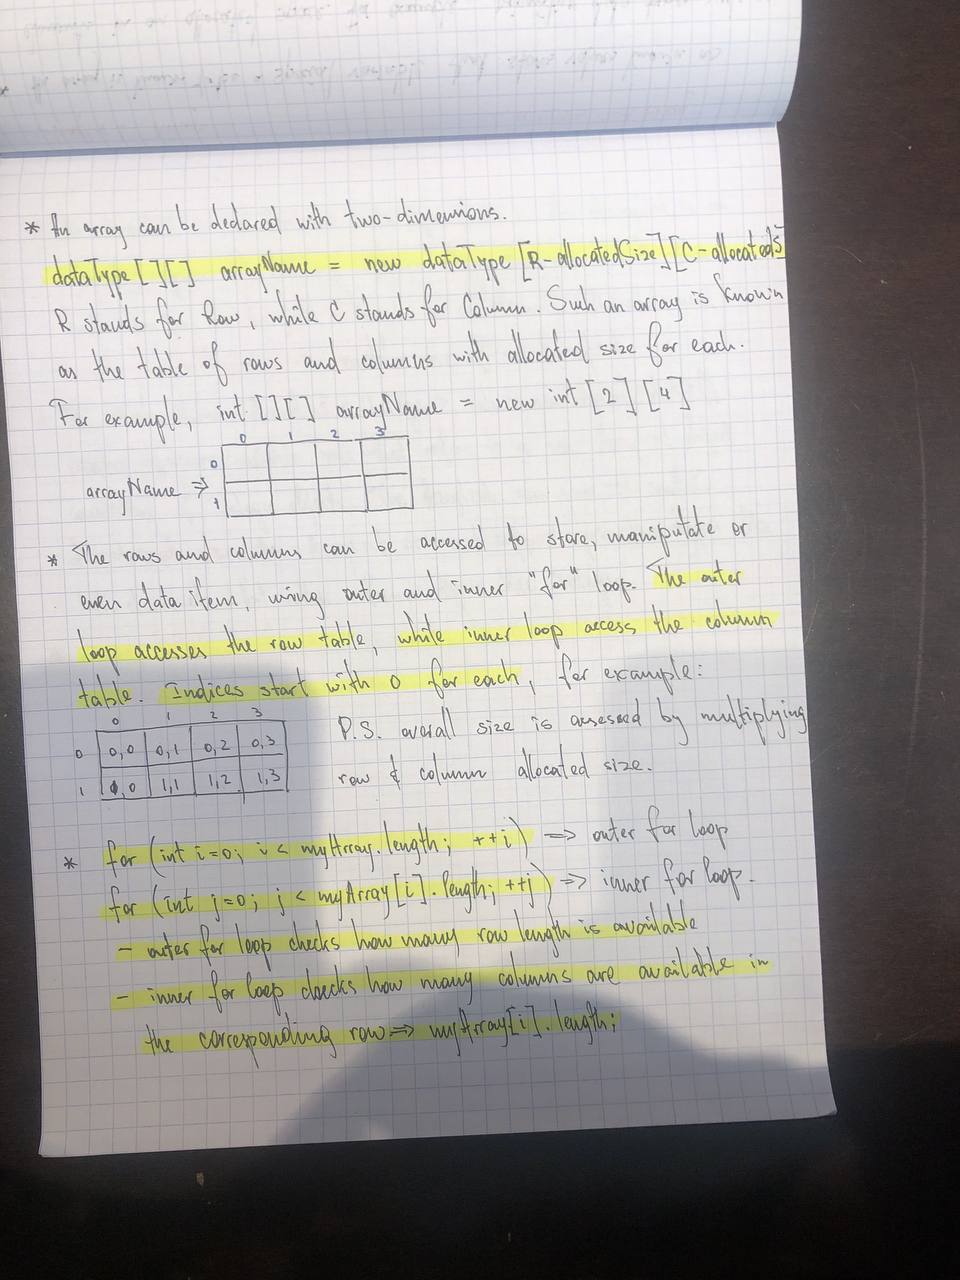 * An array can be declared with two-dimensions.
dataType[][] arrayName = new dataType[R-allocatedSize][C-allocatedS
R stands for Row, while C stands for Column. Such an array is known
as the table of rows and columns with allocated size for each.
For example, int [][] arrayName = new int [2][4]
0 1 2 3
0
arrayName =>
1
* The rows and columns can be accessed to store, manipulate or
even data item, using outer and inner "for" loop. The outer
loop accesses the row table, while inner loop access the column
table. Indices start with 0 for each, for example:
0 1 2 3
0 0,0 0,1 0,2 0,3
1 1,0 1,1 1,2 1,3
P.S. overall size is assessed by multiplying
row & column allocated size.
* for (int i=0; i < myArray.length; ++i) => outer for loop
for (int j=0; j < myArray[i].length; ++j) => inner for loop.
- outer for loop checks how many row length is available
- inner for loop checks how many columns are available in
the corresponding row => myArray[i].length;